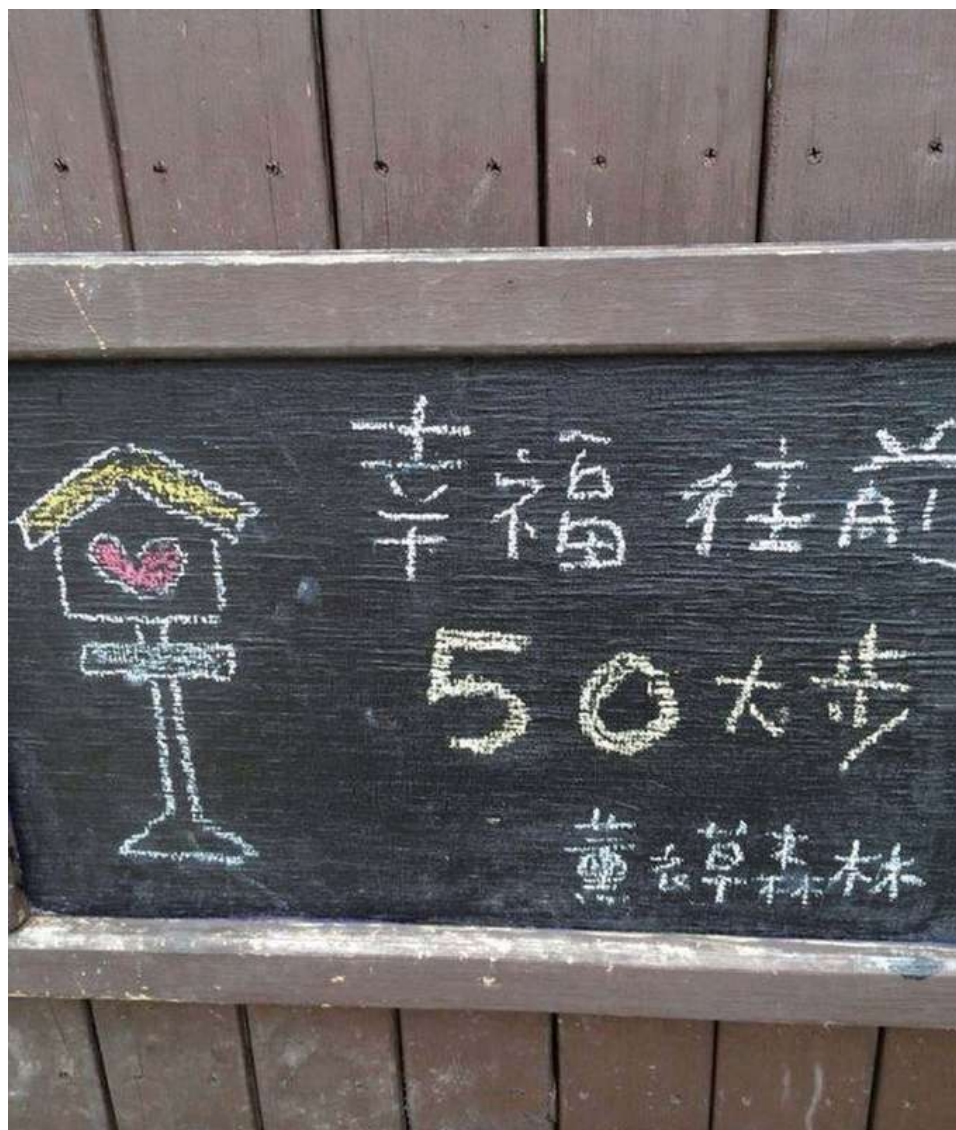 幸福往前
50大步
薰衣草森林